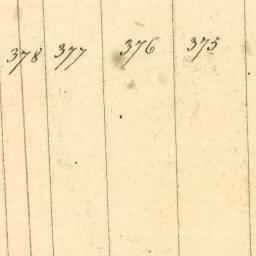 378 377 376 375